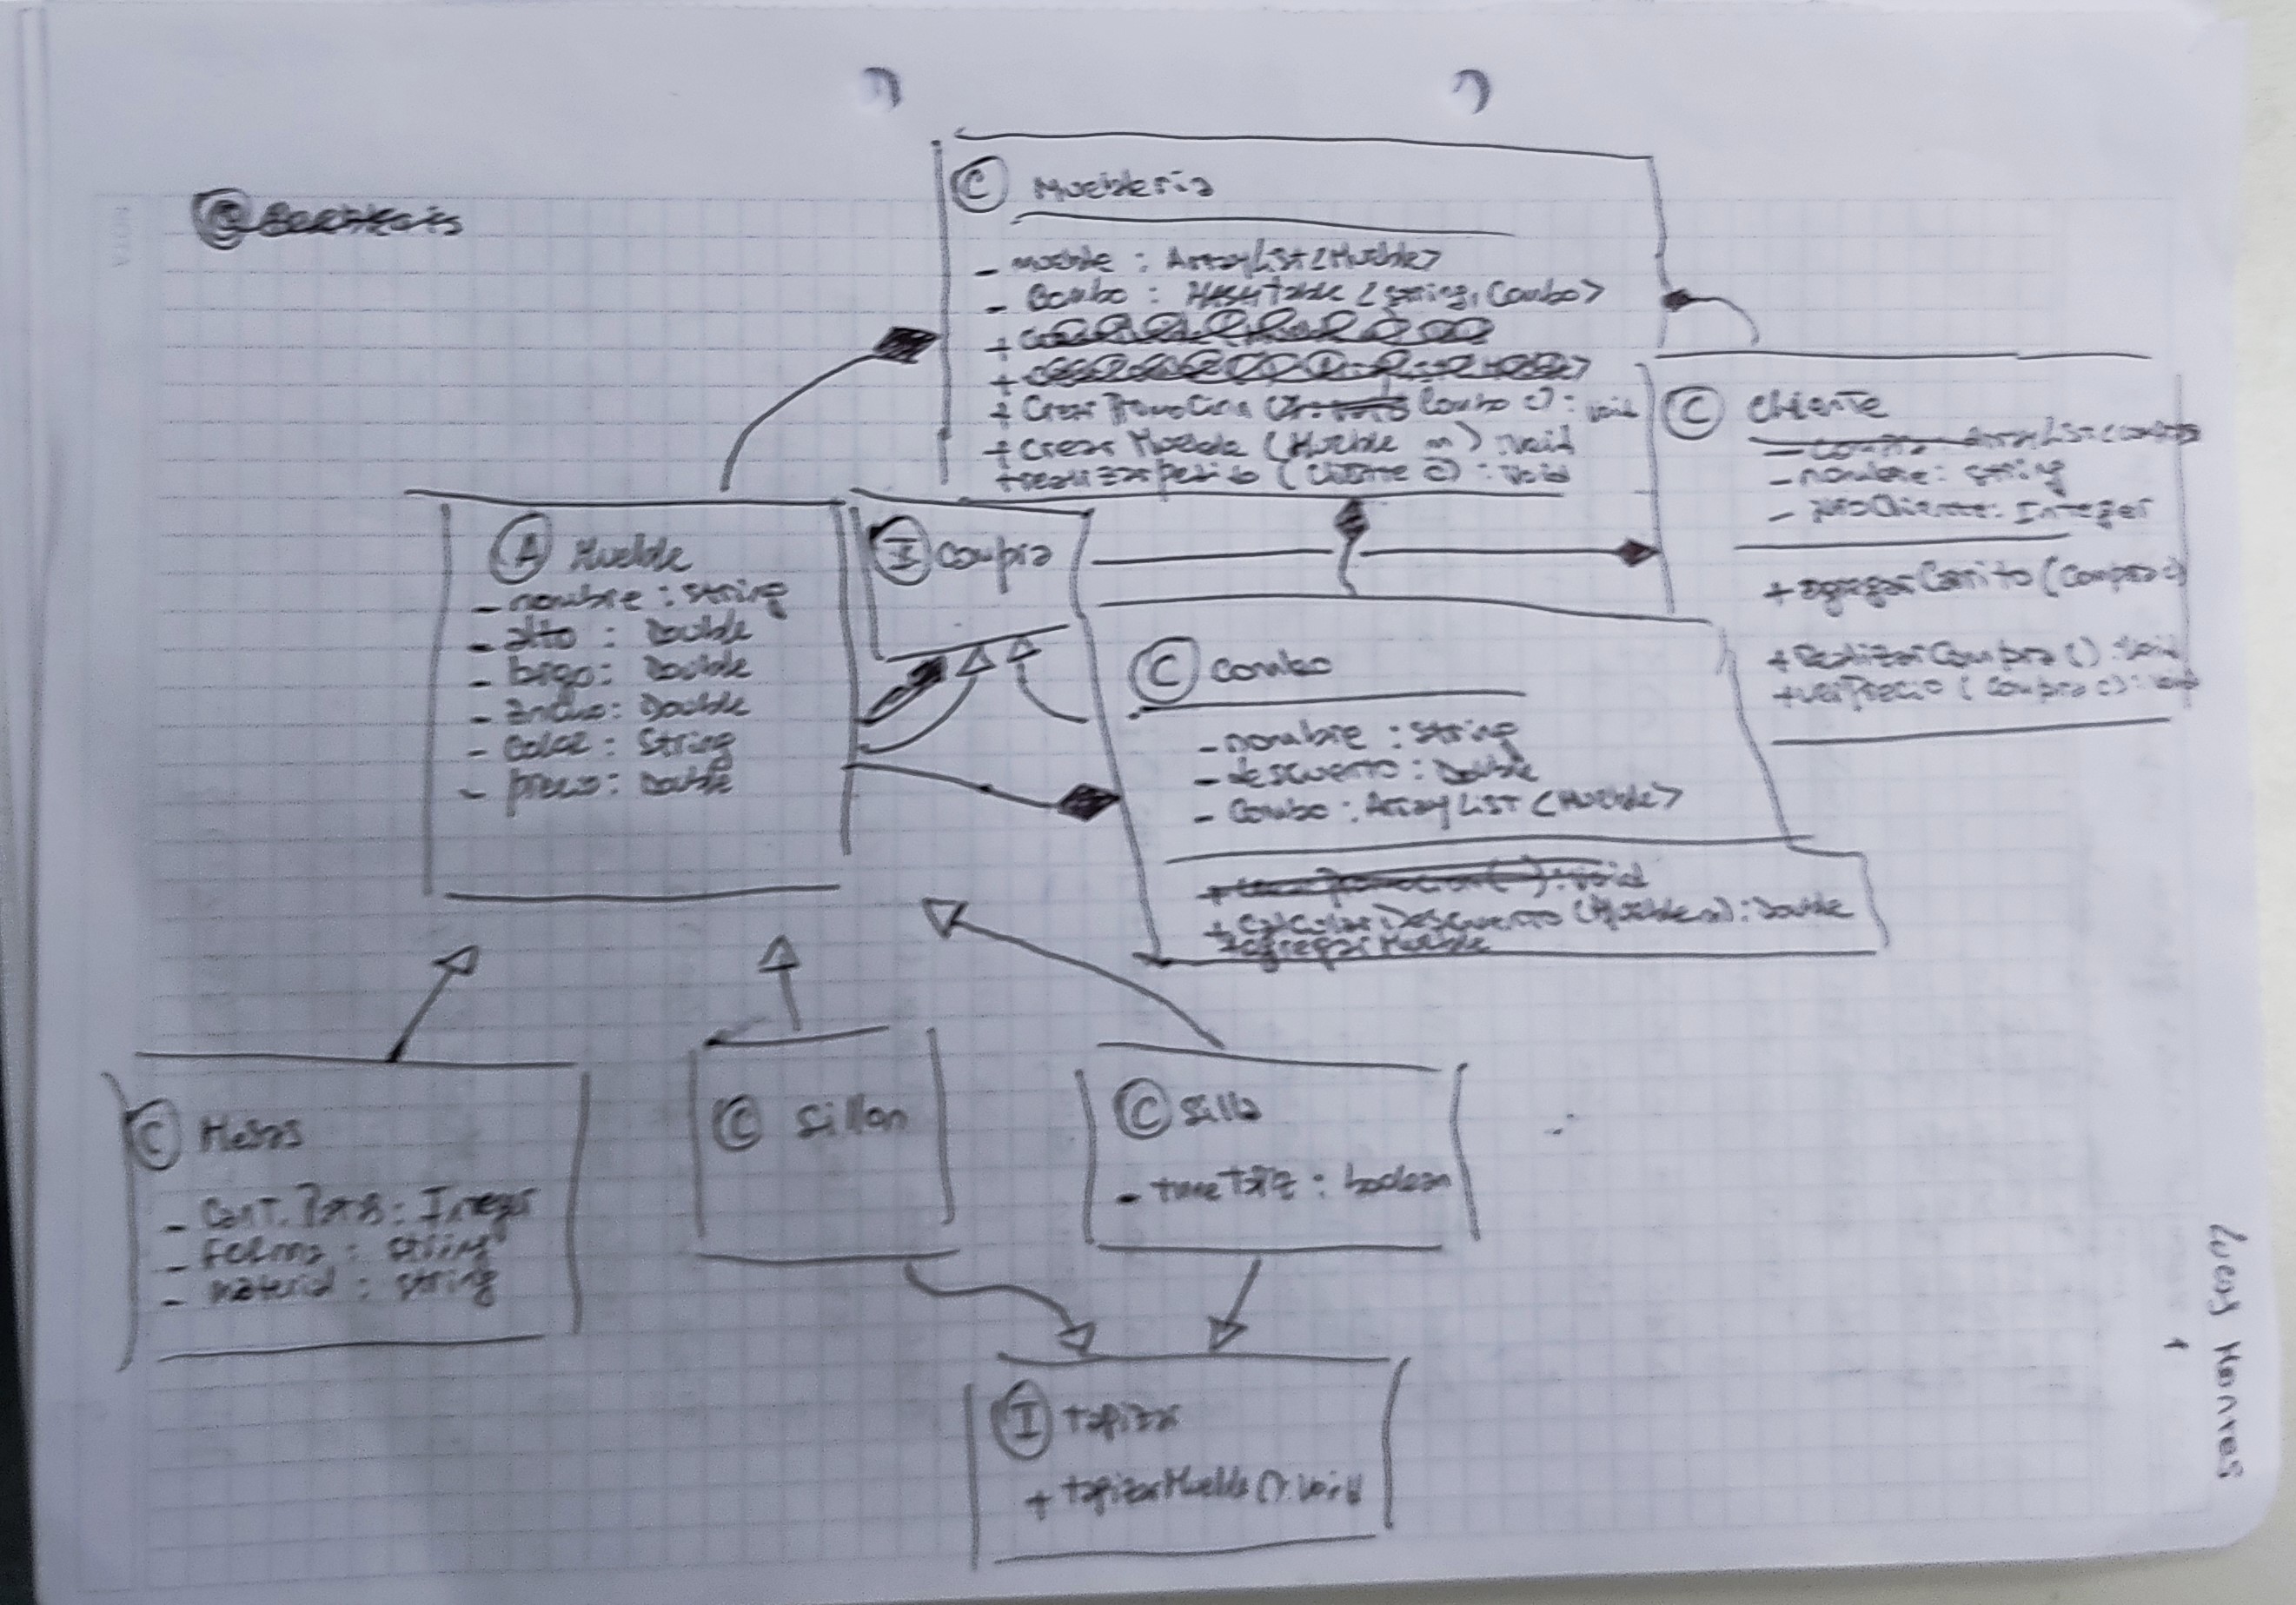 C Muebleria
- mueble : ArrayList<Mueble>
- Combo : Hashtable <String, Combo>
+ Crear Promocion ( Combo c) : void
+ Crear Mueble (Mueble m) : Void
+ realizar pedido (Cliente c) : Void
C Cliente
- nombre : String
- NroCliente : Integer
+ agregarCarrito (Compra c)
+ Realizar Compra () : Void
+ verPrecio ( Compra c) : Void
A Mueble
- nombre : String
- alto : Double
- largo : Double
- ancho : Double
- Color : String
- precio : Double
I Compra
C Combo
- nombre : String
- descuento : Double
- Combo : ArrayList <Mueble>
+ calcularDescuento (Mueble m) : Double
+ agregarMueble
C Mesas
- Cant. Patas : Integer
- Forma : String
- Material : String
C Sillon
C Silla
- tipo : boolean
I tapizar
+ tapizarMueble () : Void
Lucas
1